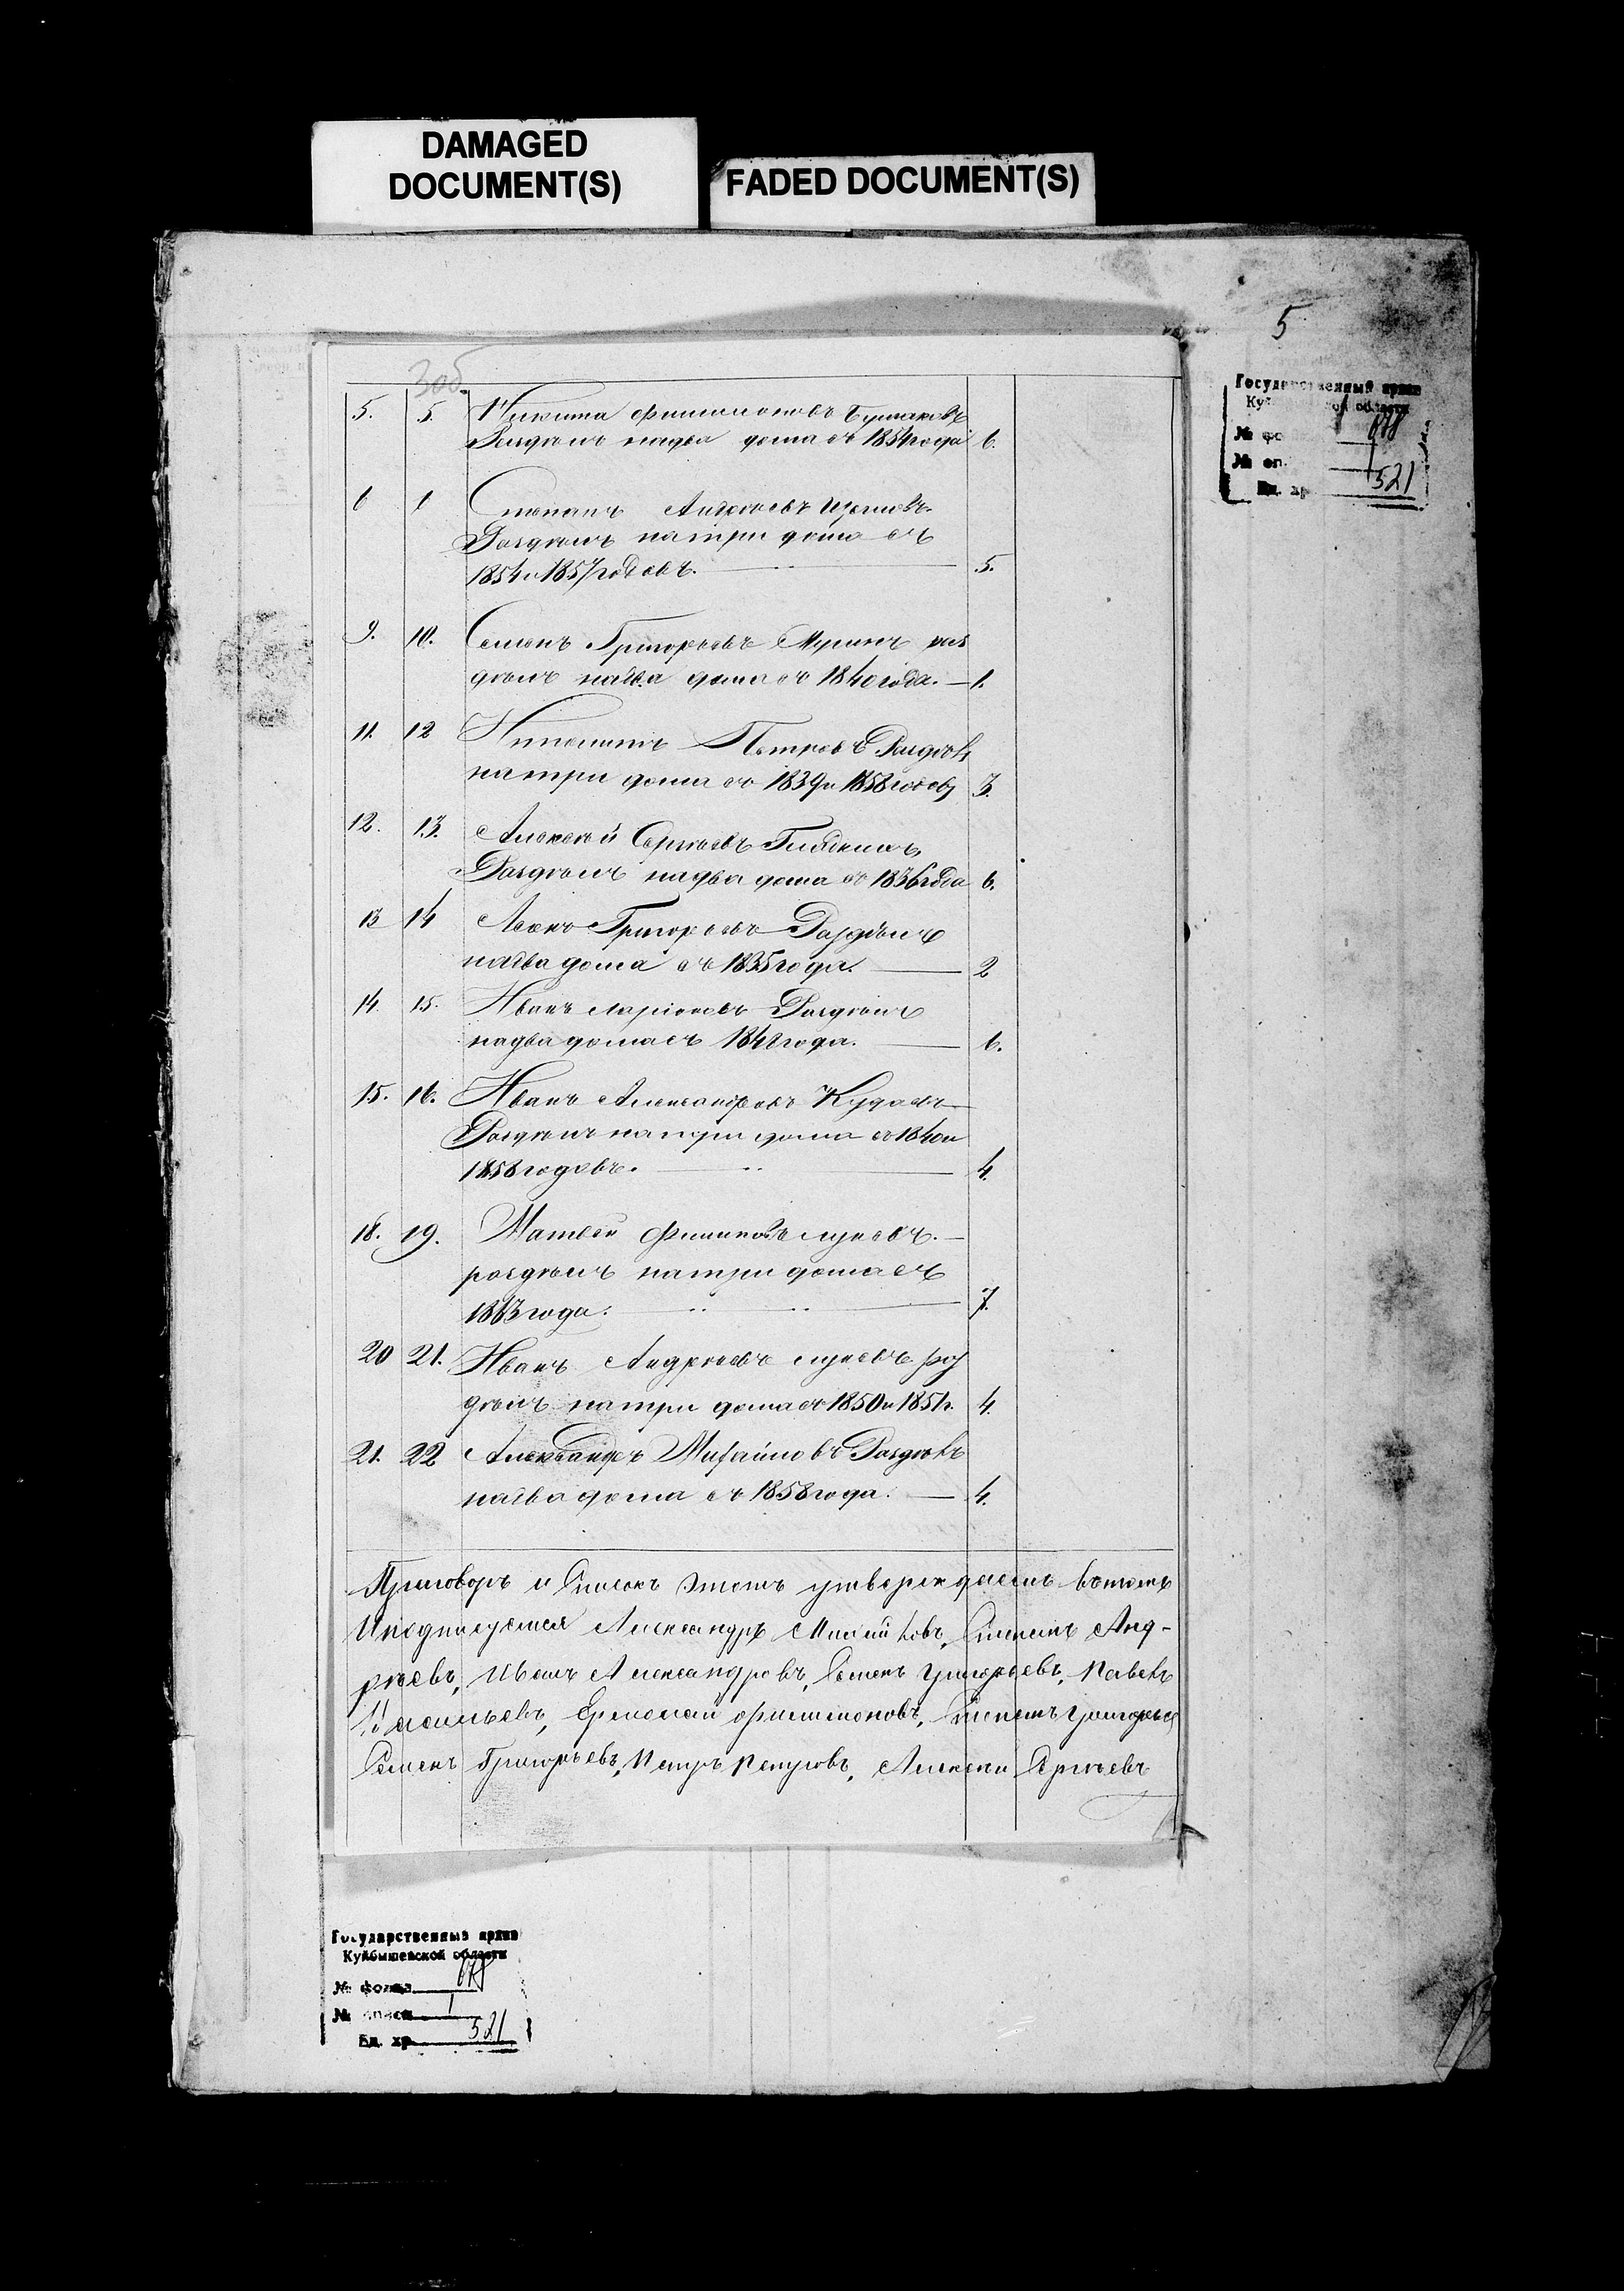 DAMAGED
DOCUMENT(S)
FADED DOCUMENT(S)
5
3об.
Государственный архив
Ку ой области
№ фо 678
№ оп. 1
Ед. хр 521
5. 5. Никита Филимоновъ Бурлаковъ
Раздѣлъ надва дома съ 1854 года 6.
6 Степанъ Андреевъ
Раздѣлъ натри дома съ
1854 и 1857 годовъ. 5.
9. 10. Семенъ Григорьевъ Муринъ раз
дѣлъ надва дома съ 1840 года. — 1.
11. 12 Петровъ Раздѣлъ
натри дома съ 1839 и 1858 годовъ 3.
12. 13. Алексѣй Сергѣевъ
Раздѣлъ надва дома съ 1836 года 6.
13 14 Григорьевъ Раздѣлъ
надва дома съ 1835 года. — 2
14 15. Иванъ Ларіоновъ Раздѣлъ
надва дома съ года. — 6.
15. 16. Иванъ Александровъ
Раздѣлъ натри дома съ 1840 и
1858 годовъ. — 4.
18. 19. Матвей Филиповъ Луневъ. —
роздѣлъ натри дома съ
1863 года. — 7.
20 21. Иванъ Андреевъ Луневъ роз
дѣлъ натри дома съ 1850 и 1851 г. 4.
21. 22 Александръ Михайловъ Раздѣлъ
надва дома съ 1858 года. — 4.
Приговоръ и Списокъ этотъ утверждаемъ вътомъ
Иподписуемся Александръ Михайловъ, Степанъ Анд-
рѣевъ, Иванъ Александровъ, Семенъ Григорьевъ, Павелъ
Васильевъ, Ермолай Филимоновъ, Степанъ Григорьев
Семенъ Григорьевъ, Петръ Петровъ, Алексѣй Сергѣевъ
Государственный архив
Куйбышевской области
№ фонда 678
№ описи 1
Ед. хр. 521